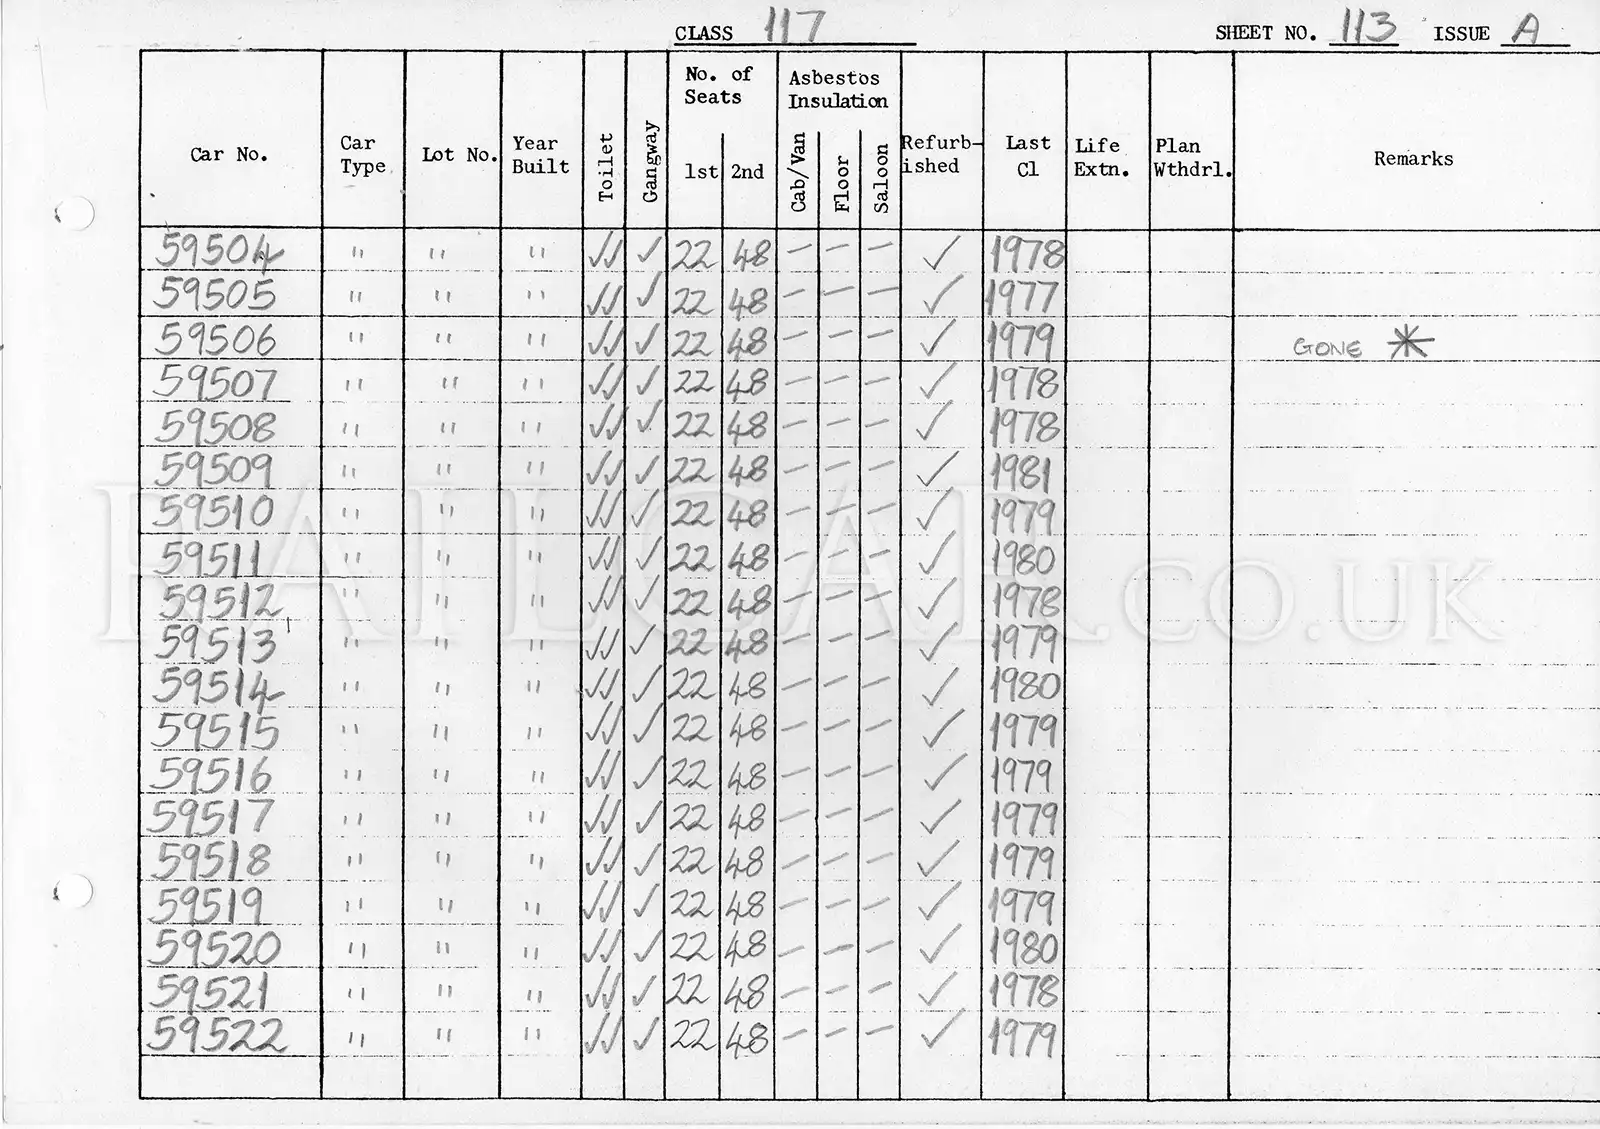 CLASS 117 SHEET NO. 113 ISSUE A
No. of Seats Asbestos Insulation
Car No. Car Type Lot No. Year Built Toilet Gangway 1st 2nd Cab/Van Floor Saloon Refurb-ished Last Cl Life Extn. Plan Wthdrl. Remarks
59504 " " " ✓✓ ✓ 22 48 — — — ✓ 1978
59505 " " " ✓✓ ✓ 22 48 — — — ✓ 1977
59506 " " " ✓✓ ✓ 22 48 — — — ✓ 1979 GONE *
59507 " " " ✓✓ ✓ 22 48 — — — ✓ 1978
59508 " " " ✓✓ ✓ 22 48 — — — ✓ 1978
59509 " " " ✓✓ ✓ 22 48 — — — ✓ 1981
59510 " " " ✓✓ ✓ 22 48 — — — ✓ 1979
59511 " " " ✓✓ ✓ 22 48 — — — ✓ 1980
59512 " " " ✓✓ ✓ 22 48 — — — ✓ 1978
59513 " " " ✓✓ ✓ 22 48 — — — ✓ 1979
59514 " " " ✓✓ ✓ 22 48 — — — ✓ 1980
59515 " " " ✓✓ ✓ 22 48 — — — ✓ 1979
59516 " " " ✓✓ ✓ 22 48 — — — ✓ 1979
59517 " " " ✓✓ ✓ 22 48 — — — ✓ 1979
59518 " " " ✓✓ ✓ 22 48 — — — ✓ 1979
59519 " " " ✓✓ ✓ 22 48 — — — ✓ 1979
59520 " " " ✓✓ ✓ 22 48 — — — ✓ 1980
59521 " " " ✓✓ ✓ 22 48 — — — ✓ 1978
59522 " " " ✓✓ ✓ 22 48 — — — ✓ 1979
RAILCAR.CO.UK